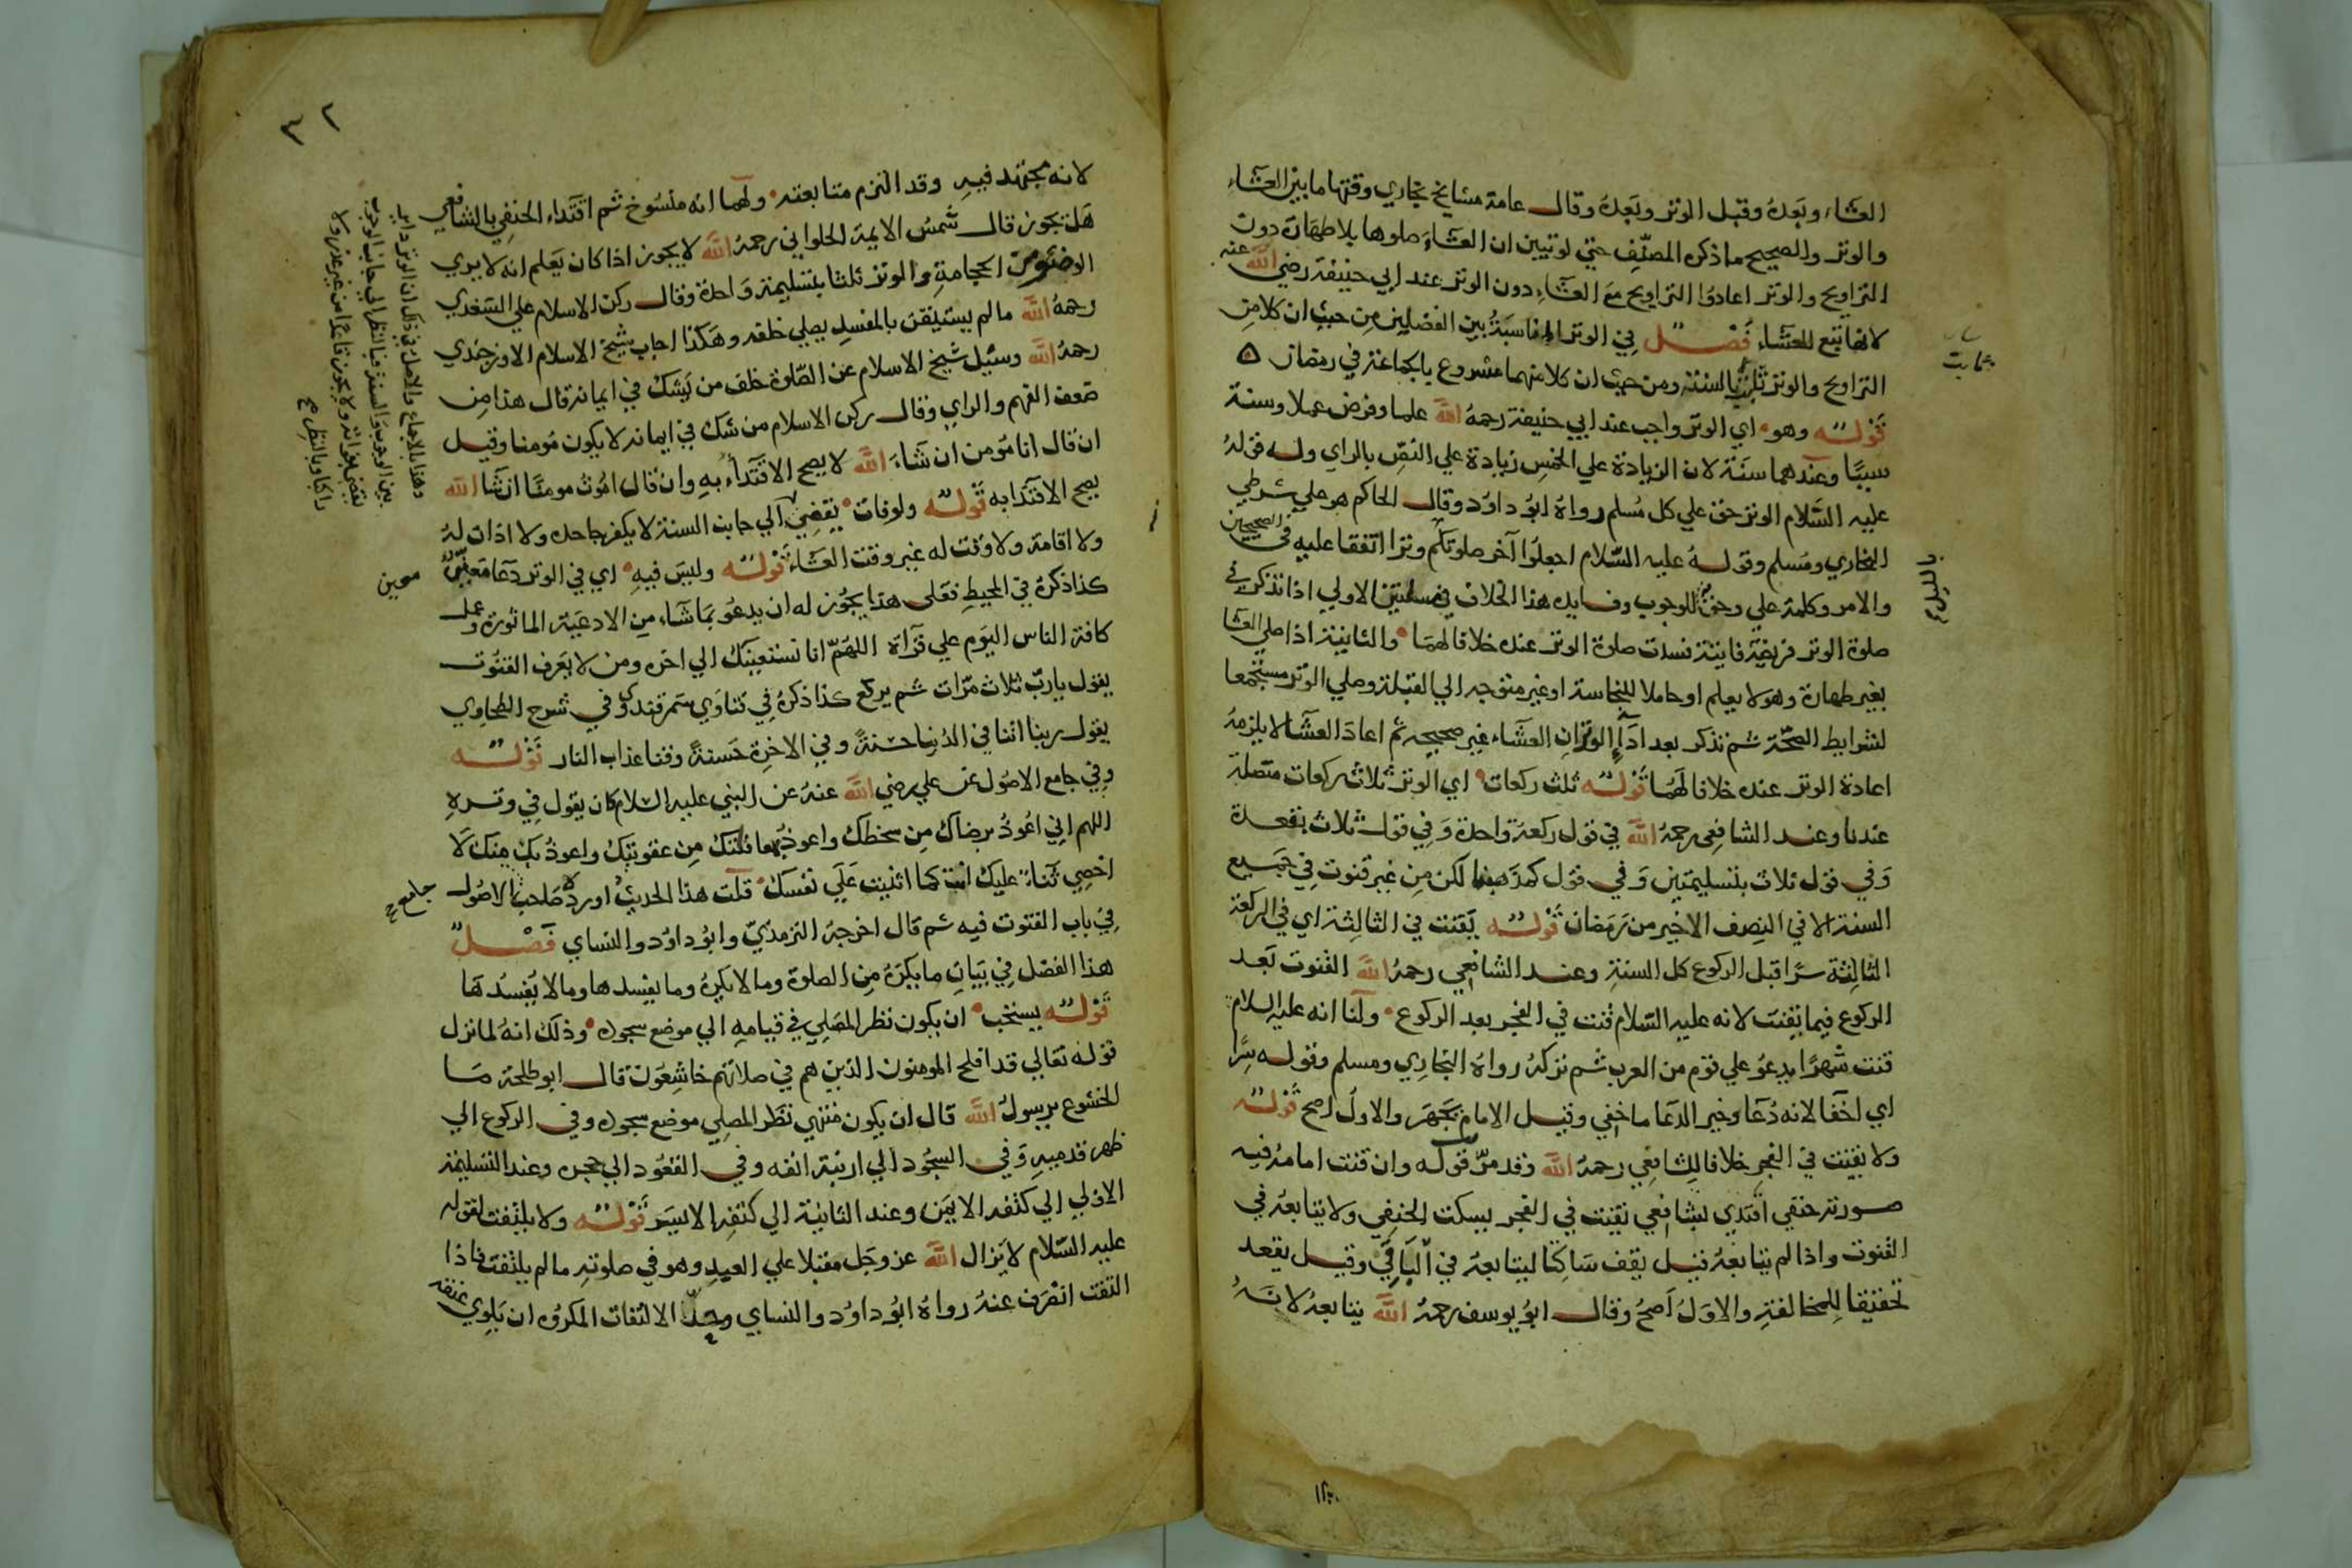 العشاء وبعده وقبل الوتر وبعده وقال عامة مشايخ بخاري وقتها ما بين العشاء
والوتر والصحيح ما ذكره المصنف حتى لو تبين ان العشاء صلوها بلا طهارة دون
التراويح والوتر اعادوا التراويح مع العشاء دون الوتر عند ابي حنيفة رضي الله عنه
لانها تبع للعشاء فصل في الوتر المناسبة بين الفصلين من حيث ان كلا من
التراويح والوتر ثبت بالسنة ومن حيث ان كلا منهما مشروع بالجماعة في رمضان
قوله وهو اي الوتر واجب عند ابي حنيفة رحمه الله علما وفرض عملا وسنة
سببا وعندهما سنة لان الزيادة علي الخمس زيادة علي النص بالراي وله قوله
عليه السلام الوتر حق علي كل مسلم رواه ابو داود وقال الحاكم هو علي شرطي
البخاري ومسلم وقوله عليه السلام اجعلوا آخر صلوتكم وترا اتفقا عليه في الصحيحين
بالليل
والامر وكلمة علي وحق للوجوب وفايدة هذا الخلاف في مسئلتين الاولي اذا تذكر في
صلوة الوتر فريضة فايتة فسدت صلوة الوتر عنده خلافا لهما والثانية اذا صلي العشا
بغير طهارة وهو لا يعلم او حاملا للنجاسة او غير متوجه الي القبلة وصلي الوتر مستجمعا
لشرايط الصحة ثم تذكر بعد اداء الوتر ان العشاء غير صحيحة ثم اعاد العشا لا يلزمه
اعادة الوتر عنده خلافا لهما قوله ثلث ركعات اي الوتر ثلاث ركعات متصلة
عندنا وعند الشافعي رحمه الله في قول ركعة واحدة وفي قول ثلاث بقعدة
وفي قول ثلاث بتسليمتين وفي قول كمذهبنا لكن من غير قنوت في جميع
السنة الا في النصف الاخير من رمضان قوله يقنت في الثالثة اي في الركعة
الثالثة سرا قبل الركوع كل السنة وعند الشافعي رحمه الله القنوت بعد
الركوع فيما يقنت لانه عليه السلام قنت في الفجر بعد الركوع ولنا انه عليه السلام
قنت شهرا يدعو علي قوم من العرب ثم تركه رواه البخاري ومسلم وقوله سرا
اي اخفا لانه دعا وخير الدعا ما خفي وقيل الامام يجهر والاول اصح قوله
ولا يقنت في الفجر خلافا للشافعي رحمه الله وقد مر قوله وان قنت امامه فيه
صورته حنفي اقتدي بشافعي يقنت في الفجر يسكت الحنفي ولا يتابعه في
القنوت واذا لم يتابعه قيل يقف ساكتا ليتابعه في الباقي وقيل يقعد
تحقيقا للمخالفة والاول اصح وقال ابو يوسف رحمه الله يتابعه لانه
٣٢
لانه مجتهد فيه وقد التزم متابعته ولهما انه منسوخ ثم اقتداء الحنفي بالشافعي
هل يجوز قال شمس الايمة الحلواني رحمه الله لا يجوز اذا كان يعلم انه لا يري
الوضو من الحجامة والوتر ثلثا بتسليمة واحدة وقال ركن الاسلام علي السغدي
رحمه الله ما لم يستيقن بالمفسد يصلي خلفه وهكذا اجاب شيخ الاسلام الاوزجندي
رحمه الله وسئل شيخ الاسلام عن الصلوة خلف من يشك في ايمانه قال هذا من
ضعف الفهم والراي وقال ركن الاسلام من شك في ايمانه لا يكون مومنا وقيل
ان قال انا مومن ان شاء الله لا يصح الاقتداء به وان قال اموت مومنا ان شا الله
يصح الاقتدا به قوله ولو فات يقضي الي جانب السنة لا يكفر جاحده ولا اذان له
ولا اقامة ولا وقت له غير وقت العشاء قوله وليس فيه اي في الوتر دعا معين
معين
كذا ذكره في المحيط فعلى هذا يجوز له ان يدعو بما شاء من الادعية الماثورة وعمل
كافة الناس اليوم علي قراة اللهم انا نستعينك الي اخره ومن لا يعرف القنوت
يقول يا رب ثلاث مرات ثم يركع كذا ذكره في فتاوي سمرقند وفي شرح الطحاوي
يقول ربنا اتنا في الدنيا حسنة وفي الاخرة حسنة وقنا عذاب النار قوله
وفي جامع الاصول عن علي رضي الله عنه عن النبي عليه السلام كان يقول في وتره
اللهم اني اعوذ برضاك من سخطك واعوذ بمعافاتك من عقوبتك واعوذ بك منك لا
احصي ثناء عليك انت كما اثنيت علي نفسك قلت هذا الحديث اورده صاحب الاصول
جامع
في باب القنوت فيه ثم قال اخرجه الترمذي وابو داود والنساي فصل
هذا الفصل في بيان ما يكره من الصلوة وما لا يكره وما يفسدها وما لا يفسدها
قوله يستحب ان يكون نظر المصلي في قيامه الي موضع سجوده وذلك انه لما نزل
قوله تعالي قد افلح المومنون الذين هم في صلاتهم خاشعون قال ابو طلحة ما
الخشوع يرسول الله قال ان يكون منتهي نظر المصلي موضع سجوده وفي الركوع الي
ظهر قدميه وفي السجود الي ارنبة انفه وفي القعود الي حجره وعند التسليمة
الاولي الي كتفه الايمن وعند الثانية الي كتفه الايسر قوله ولا يلتفت لقوله
عليه السلام لا يزال الله عز وجل مقبلا علي العبد وهو في صلوته ما لم يلتفت فاذا
التفت انصرف عنه رواه ابو داود والنساي وحد الالتفات المكروه ان يلوي عنقه